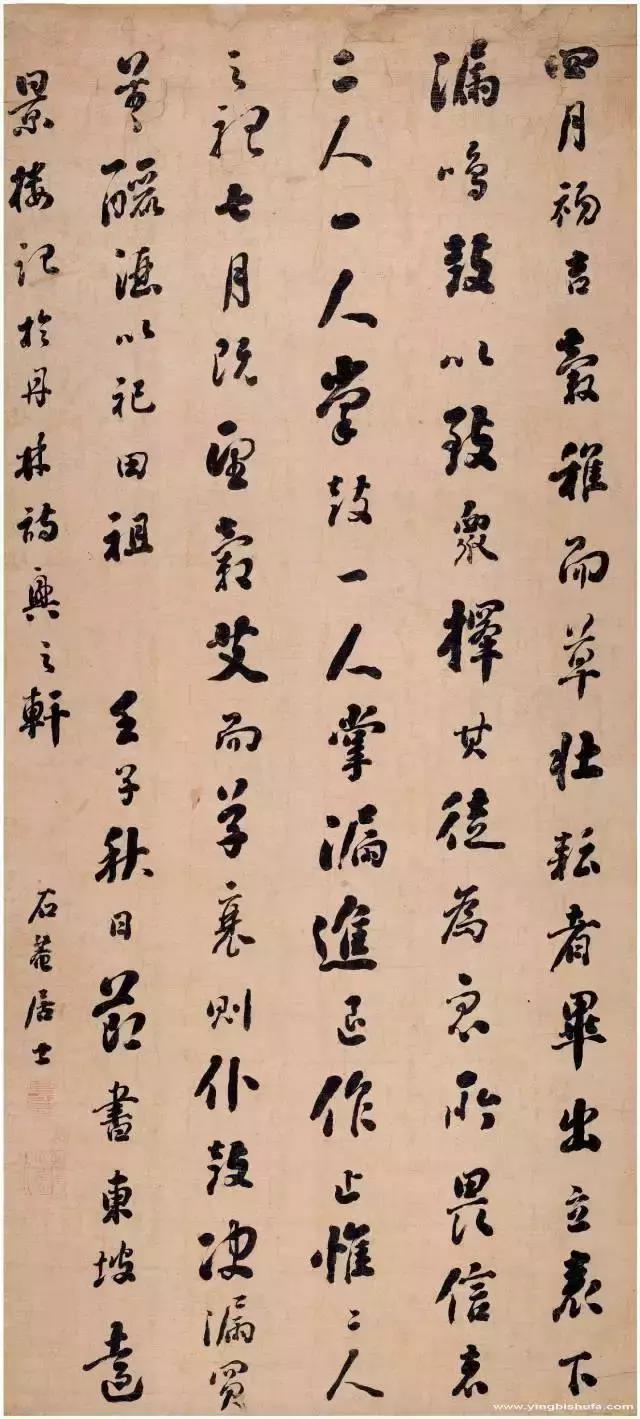 四月初吉穀稚而草壯耘者畢出立表下
漏鳴鼓以致眾擇其徒為眾所畏信者
二人一人掌鼓一人掌漏進退作止惟二人
之聽七月既望穀艾而草衰則仆鼓決漏買
釃酒以祀田祖 壬子秋日節書東坡遠
景樓記於丹林詩興之軒 石菴居士
www.yingbishufa.com